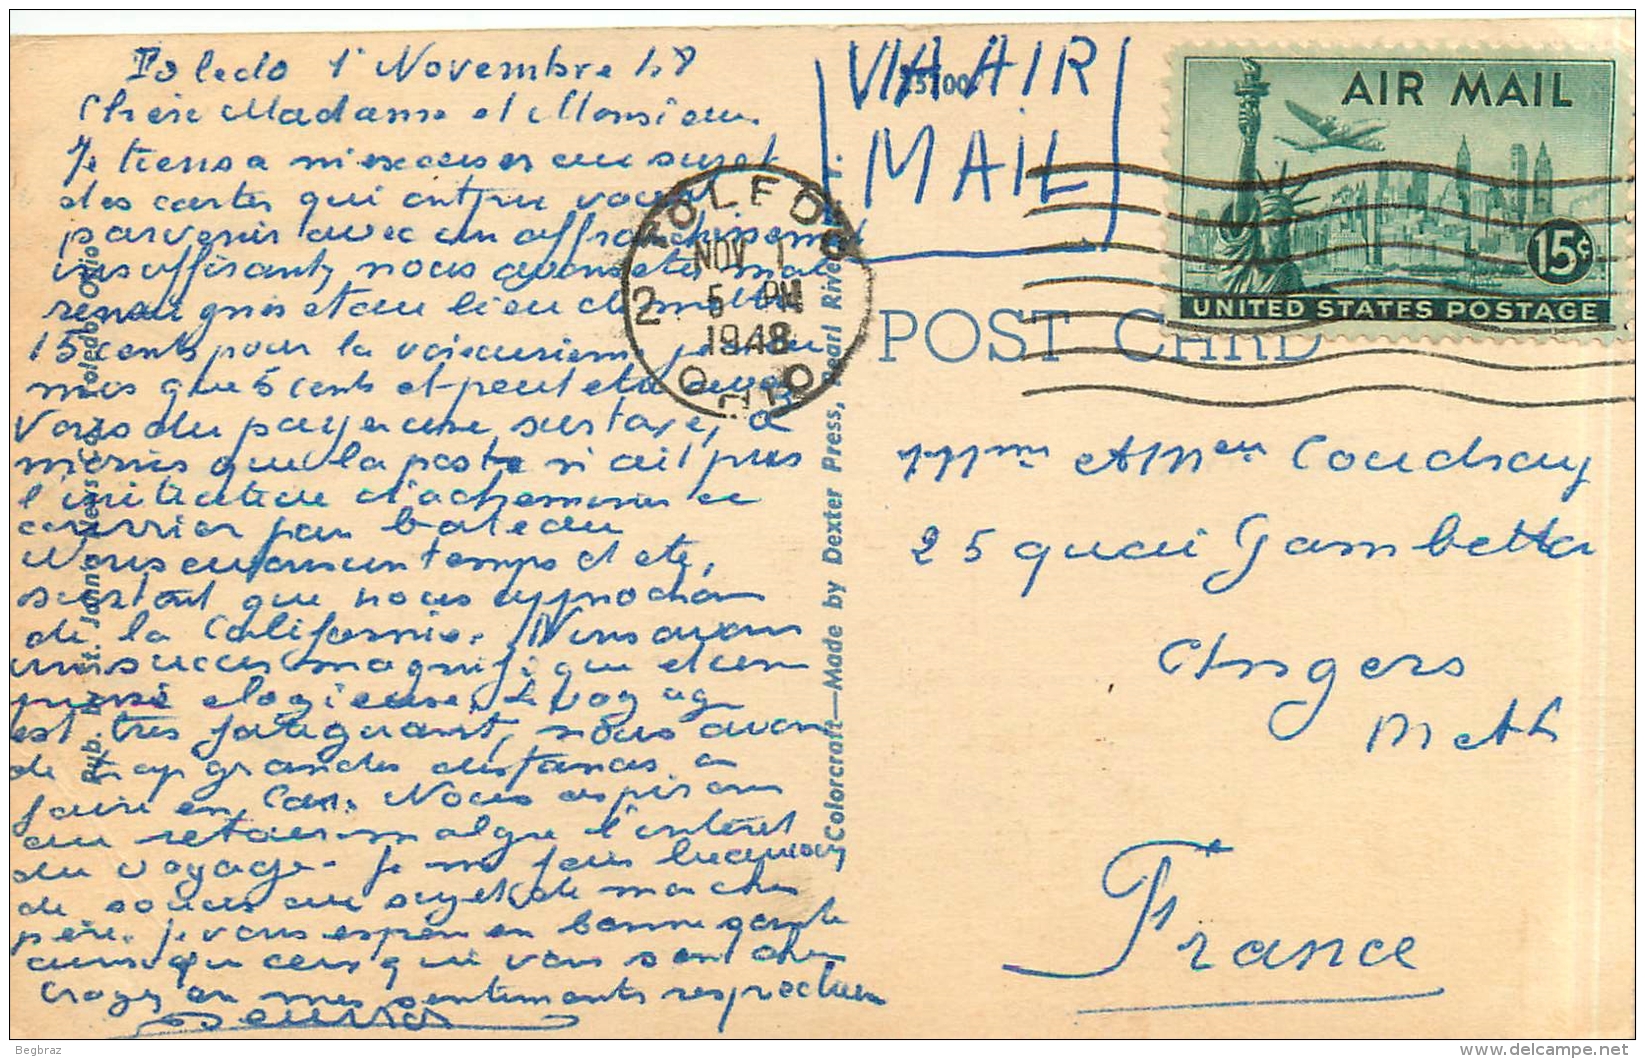 Toledo 1r Novembre 48
Chère Madame et Monsieur
Je tiens a m'excuser au sujet
des cartes qui ont pu vous
parvenir avec un affranchissement
insuffisant, nous avons été mal
renseignés et au lieu de mettre
15 cents pour la voie aérienne je n'ai
mis que 5 cents et peut etre avez
Vous du payer une surtaxe, a
moins que la poste n'ait pris
l'initiative d'acheminer ce
courrier par bateau
Nous avons un temps d'été,
surtout que nous approchons
de la Californie. Nous avons
un succes magnifique et une
elogieuse, le voyage
est très fatiguant, nous avons
de trop grandes distances a
faire en Car. Nous aspirons
au retour malgre l'interet
du voyage. Je me fais beaucoup
de soucis au sujet de mon cher
père. Je vous espère en bonne santé
ainsi que ceux qui vous sont chers
Croyez en mes sentiments respectueux
VIA AIR
MAIL
AIR MAIL
15¢
UNITED STATES POSTAGE
TOLEDO
NOV 1
5 PM
1948
2
OHIO
POST CARD
Mme A Mr Coudray
25 quai Gambetta
Angers
M et L
France
Colorcraft—Made by Dexter Press, Pearl River, N. Y.
Begbraz
delcampe.net